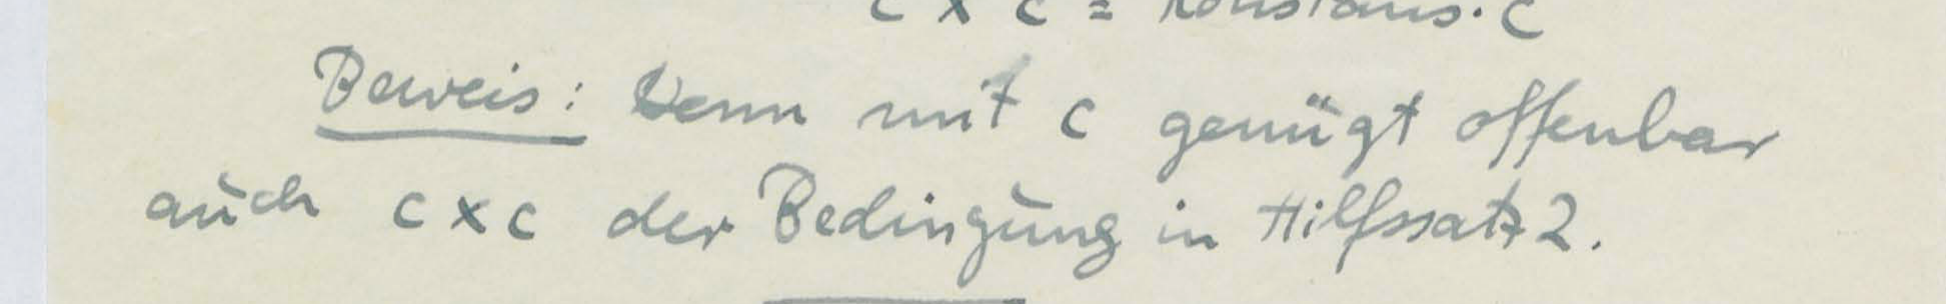 c × c = Konstans · c
Beweis: Denn mit c genügt offenbar
auch c × c der Bedingung in Hilfssatz 2.